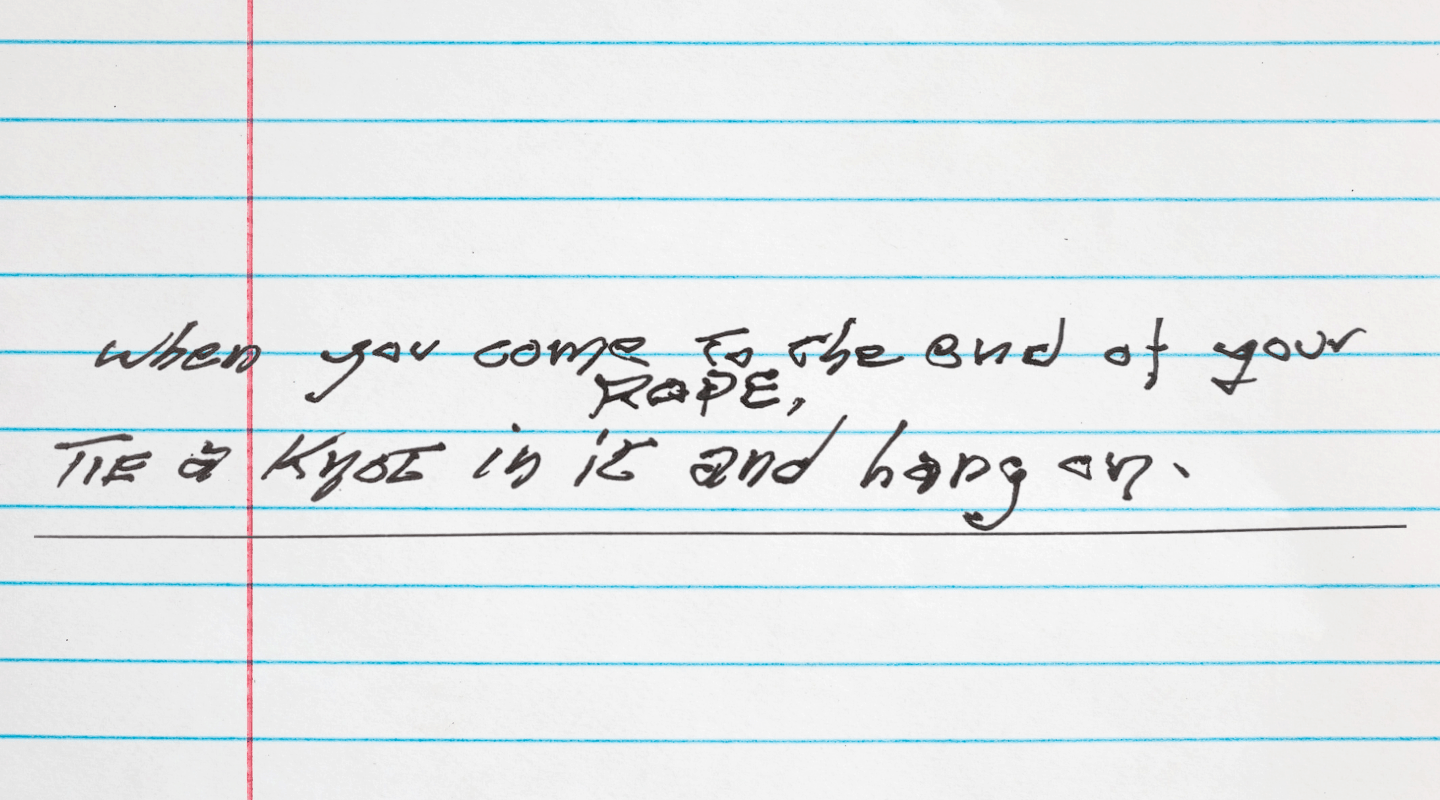 when you come to the end of your
ROPE,
TIE a Knot in it and hang on.